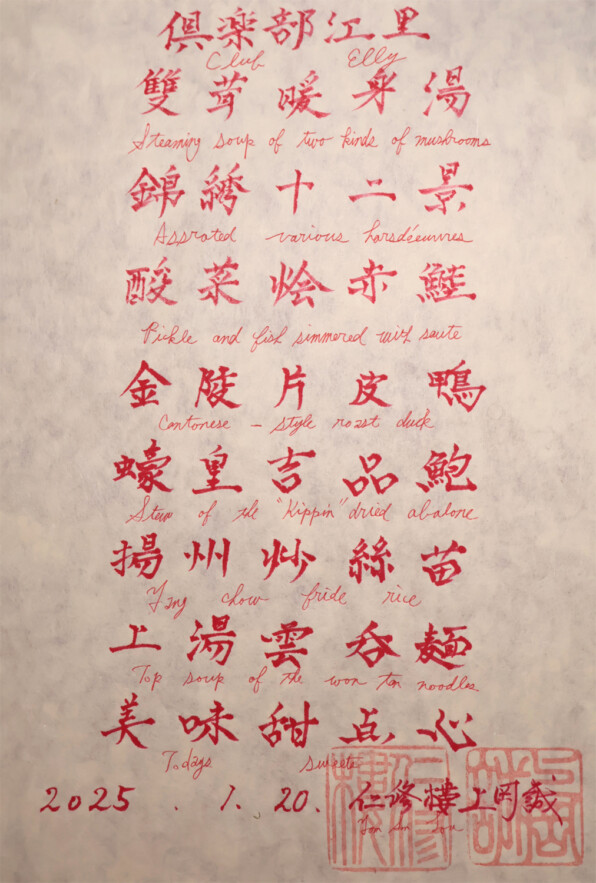 倶楽部江里
Club Elly
雙茸暖身湯
Steaming soup of two kinds of mushrooms
錦綉十二景
Assrated various horsdéeuvres
酸菜烩赤鮭
Pickle and fish simmered with saute
金陵片皮鴨
Cantonese - style roast duck
蠔皇吉品鮑
Stew of the "Kippin" dried abalone
揚州炒絲苗
Yang chow fride rice
上湯雲呑麺
Top soup of the won ton noodles
美味甜点心
Todays sweets
2025.1.20. 仁修樓上岡誠